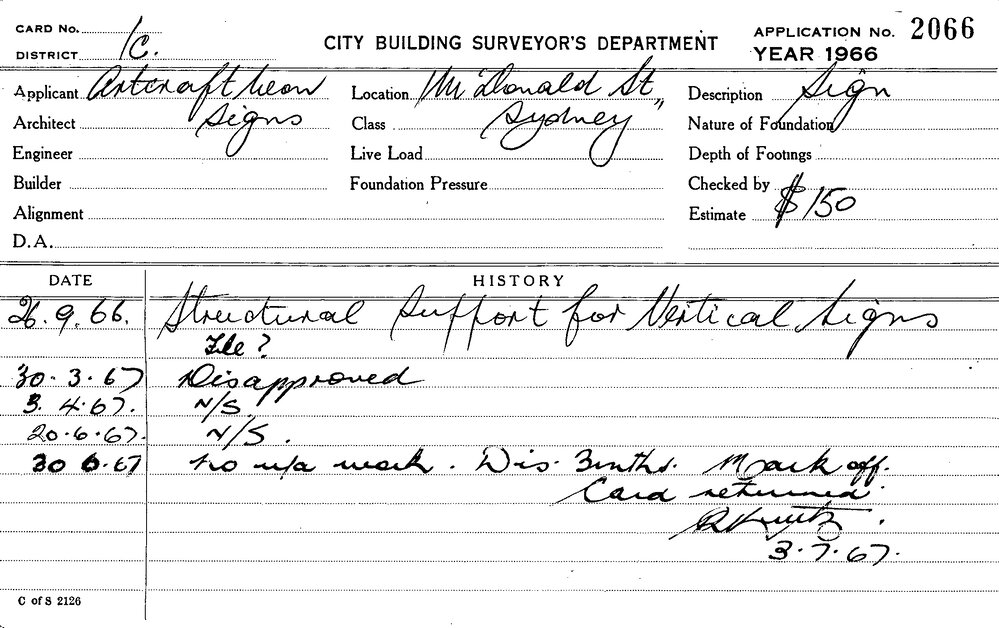 CARD No. APPLICATION No. 2066
DISTRICT 1C. CITY BUILDING SURVEYOR'S DEPARTMENT YEAR 1966
Applicant Artcraft Neon Location McDonald St., Description Sign
Architect Signs Class Sydney Nature of Foundation
Engineer Live Load Depth of Footings
Builder Foundation Pressure Checked by
Alignment Estimate $150
D.A.
DATE HISTORY
26.9.66. Structural Support for Vertical Signs
File?
30.3.67 Disapproved
3.4.67. N/S.
20.6.67. N/S.
30 6.67 no u/a work. Dis. 3mths. Mark off.
Card returned.
3.7.67.
C of S 2126